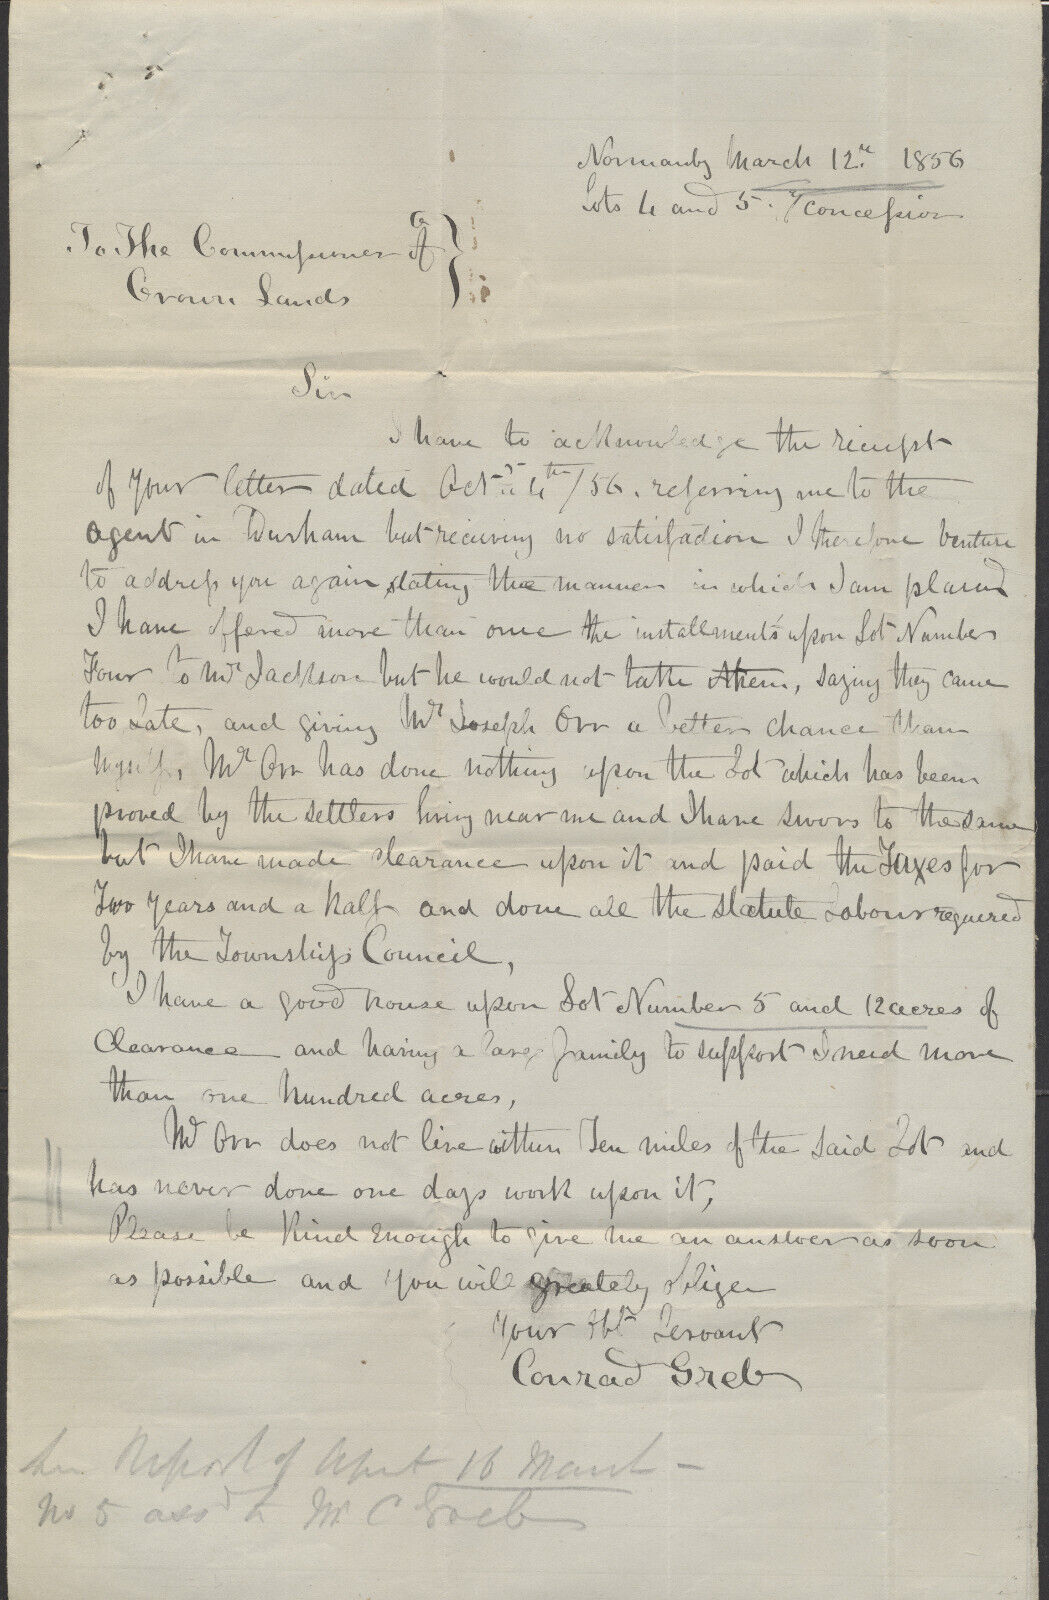 Normanby March 12th 1856
Lots 4 and 5. 7 Concession
To The Commissioner of
Crown Lands
Sir
I have to acknowledge the reciept
of Your letter dated Oct 4th /56. referring me to the
agent in Durham but recieving no satisfadion I therefore venture
to address you again, stating the manner in which I am placed
I have offered more than once the installments upon Lot Number
Four to Mr Jackson but he would not take them, saying they came
too Late, and giving Mr Joseph Orr a better chance than
Myself, Mr Orr has done nothing upon the Lot which has been
proved by the settlers living near me and I have swors to the same
but I have made clearance upon it and paid the Taxes for
Two Years and a half and done all the statute Labour requered
by the Township Council,
I have a good house upon Lot Number 5 and 12 acres of
Clearance and having a large family to support I need more
than one hundred acres,
Mr Orr does not live within Ten miles of the said Lot and
has never done one days work upon it,
Please be Kind Enough to give me an answer as soon
as possible and you will greately oblige
Your Obt Servant
Conrad Greb
Report of Agent 16 March
No 5 assd to Mr C Greb